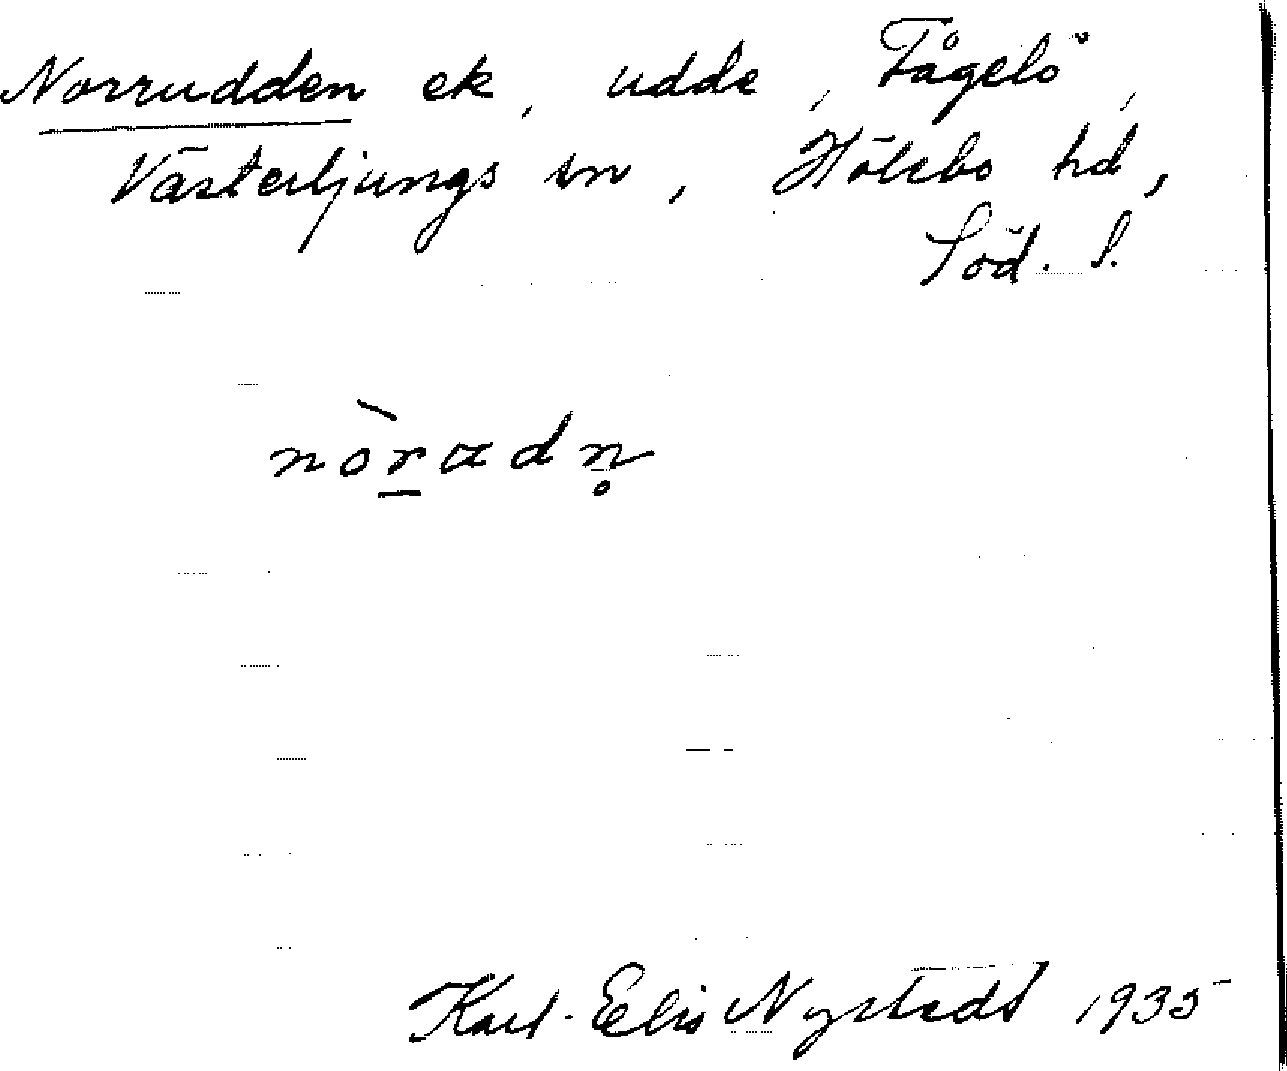 Norrudden ek, udde, Fågelö,
Västerljungs sn, Hölebo hd,
Söd. l.
nòradn̥
Karl-Elis Nystedt 1935